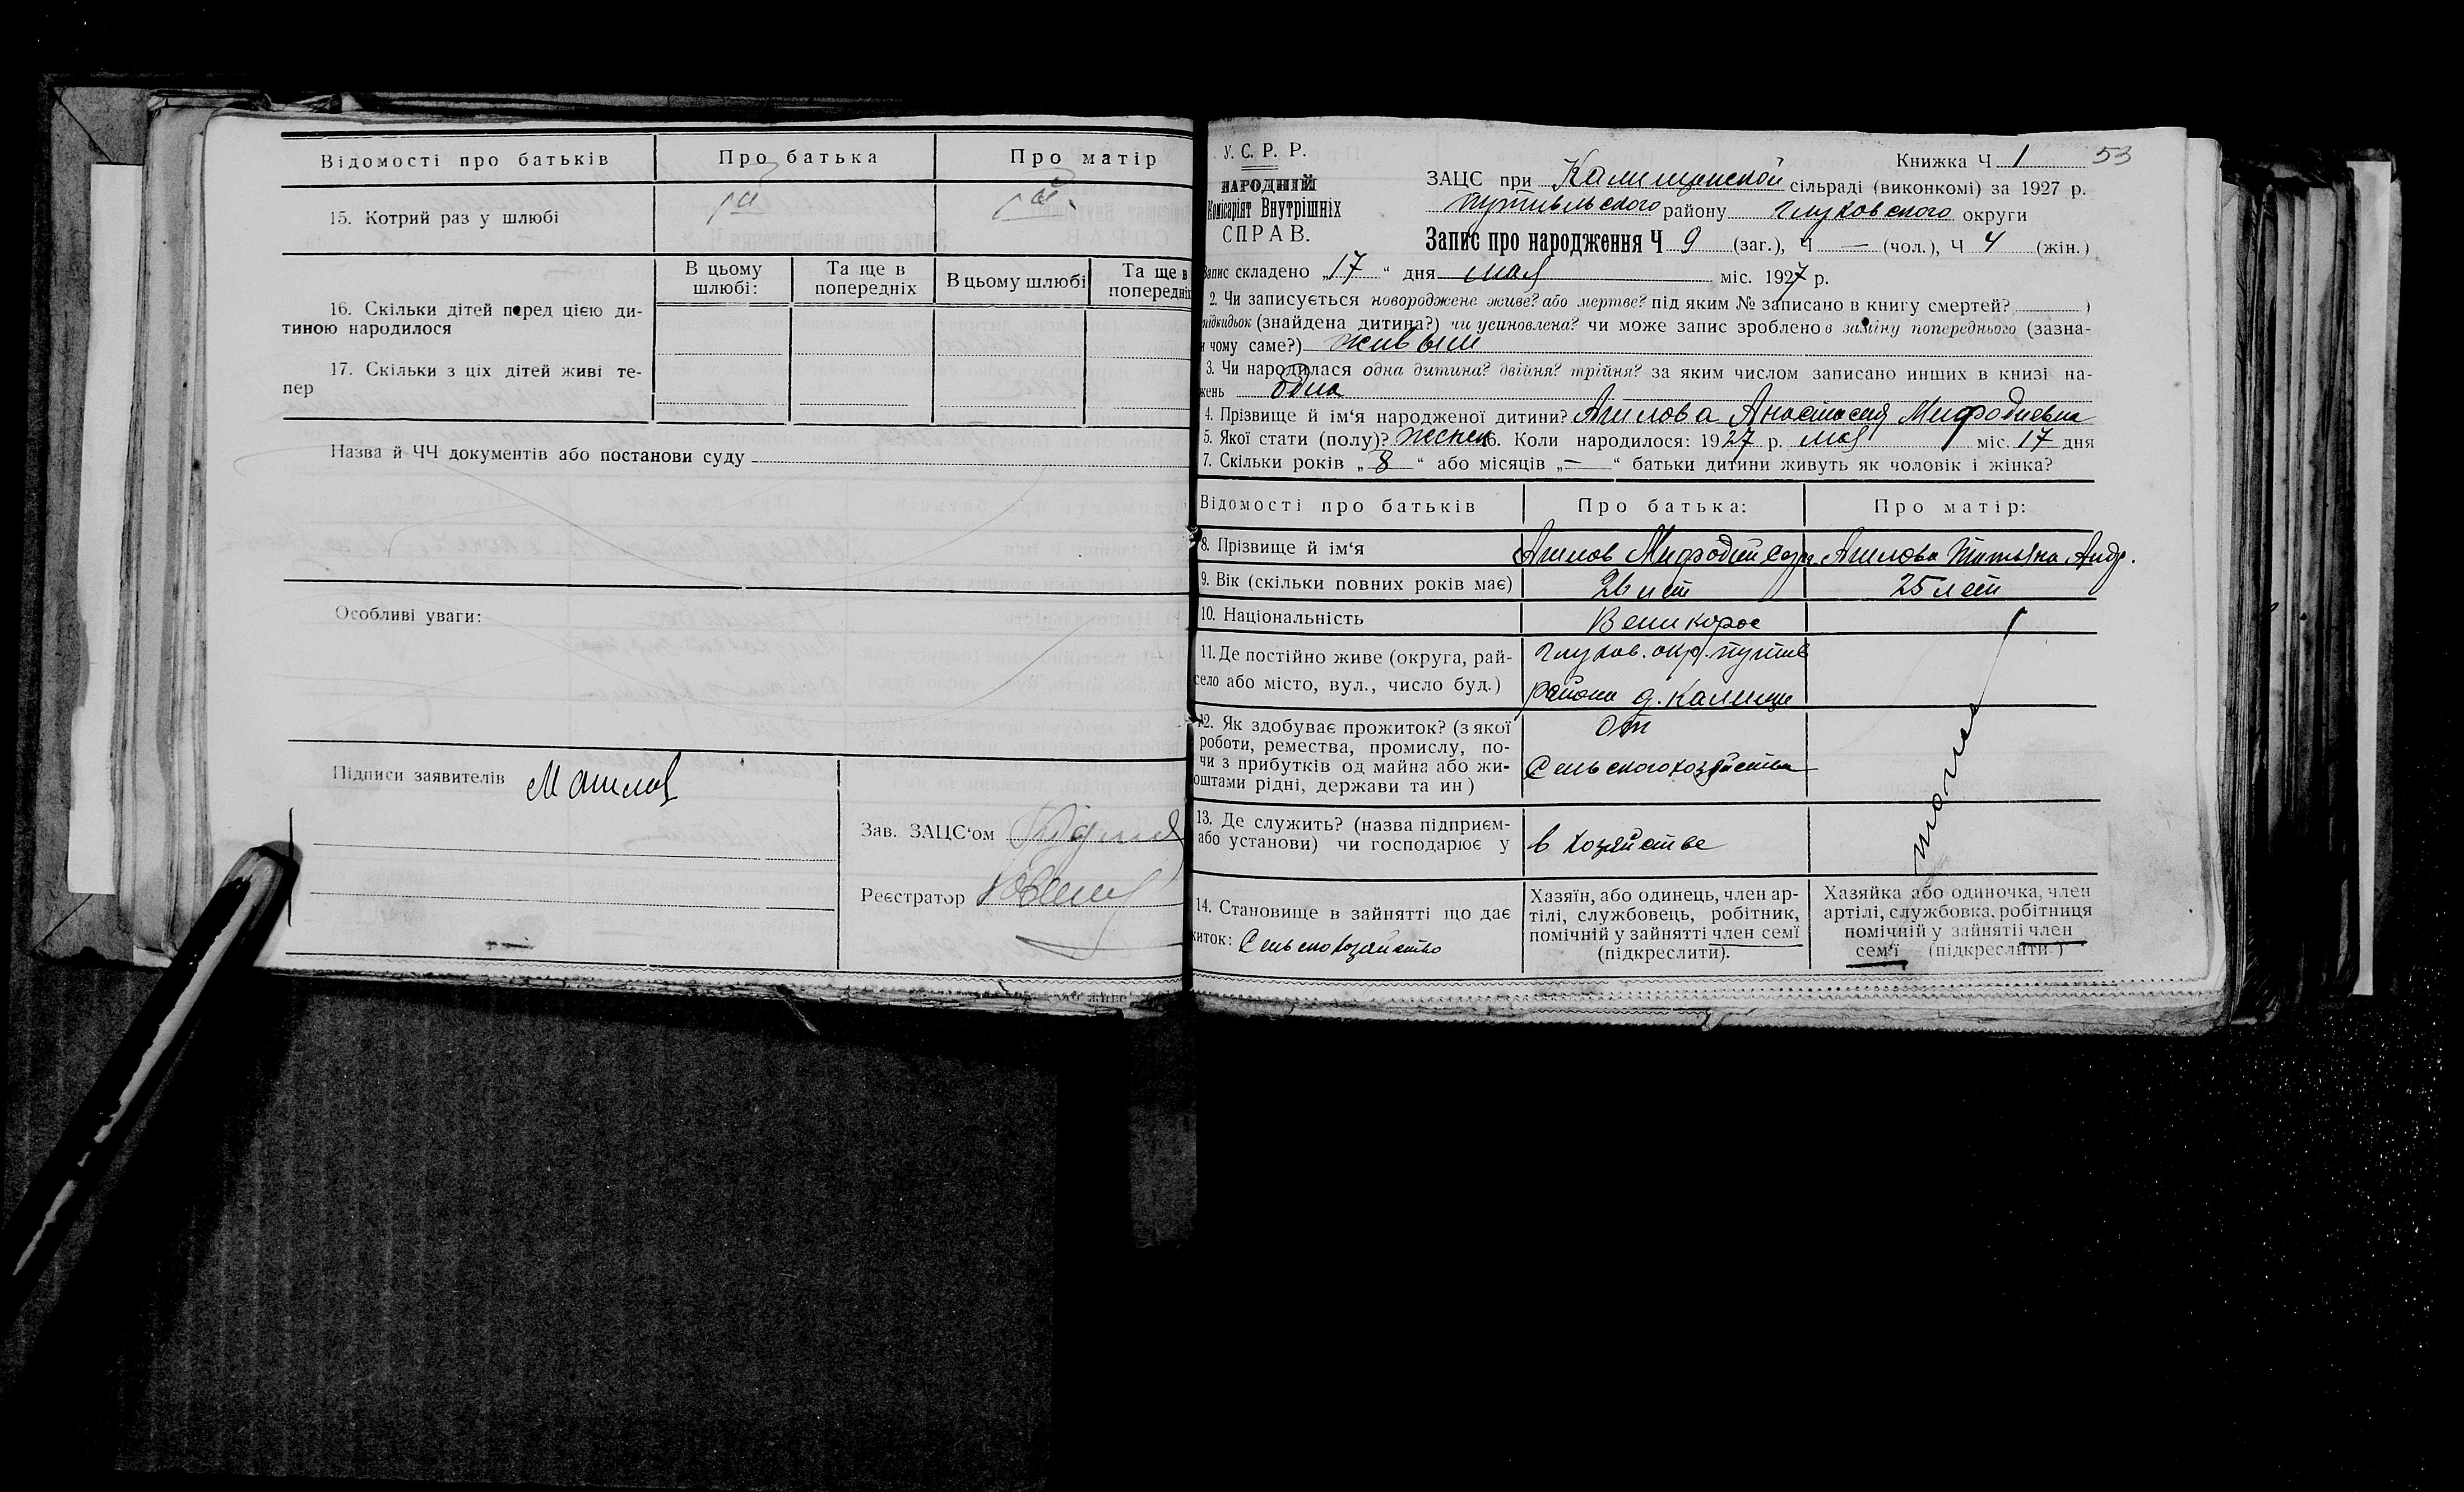 Відомості про батьків Про батька Про матір
15. Котрий раз у шлюбі 1й 1й.
В цьому шлюбі: Та ще в попередніх В цьому шлюбі Та ще в попередніх
16. Скільки дітей перед цією ди-
тиною народилося
17. Скільки з ціх дітей живі те-
пер
Назва й ЧЧ документів або постанови суду
Особливі уваги:
Підписи заявителів
Зав. ЗАЦС‘ом
Реєстратор
У. С. Р. Р.
НАРОДНІЙ
Комісаріят Внутрішніх
СПРАВ.
Книжка Ч 1 53
ЗАЦС при Калищенской сільраді (виконкомі) за 1927 р.
Путивльского району Глуховского округи
Запис про народження Ч 9 (заг.), Ч — (чол.), Ч 4 (жін.)
Запис складено „17“ дня мая міс. 1927 р.
2. Чи записується новороджене живе? або мертве? під яким № записано в книгу смертей? )
підкидьок (знайдена дитина?) чи усиновлена? чи може запис зроблено в заміну попереднього (зазна-
и чому саме?) живым
3. Чи народилася одна дитина? двійня? трійня? за яким числом записано инших в книзі на-
жень одна
4. Прізвище й ім‘я народженої дитини? Анастасия Мифодиевна
5. Якої стати (полу)? женск 6. Коли народилося: 1927 р. мая міс. 17 дня
7. Скільки років „8“ або місяців „—“ батьки дитини живуть як чоловік і жінка?
Відомості про батьків Про батька: Про матір:
8. Прізвище й ім‘я Мифодий Татьяна Андр.
9. Вік (скільки повних років має) 26 лет 25 лет
10. Національність Великорос
11. Де постійно живе (округа, рай-
село або місто, вул., число буд.)
Глухов. окр. Путив
района д. Калище
12. Як здобуває прожиток? (з якої
роботи, ремества, промислу, по-
чи з прибутків од майна або жи-
оштами рідні, держави та ин)
От
Сельского хозяйства
тоже
13. Де служить? (назва підприєм-
або установи) чи господарює у
в хозяйстве
14. Становище в зайнятті що дає
житок: Сельско хозяйство
Хазяїн, або одинець, член ар-
тілі, службовець, робітник,
помічній у зайнятті член семї
(підкреслити).
Хазяйка або одиночка, член
артілі, службовка, робітниця
помічній у зайнятіі член
сем‘ї (підкреслити)